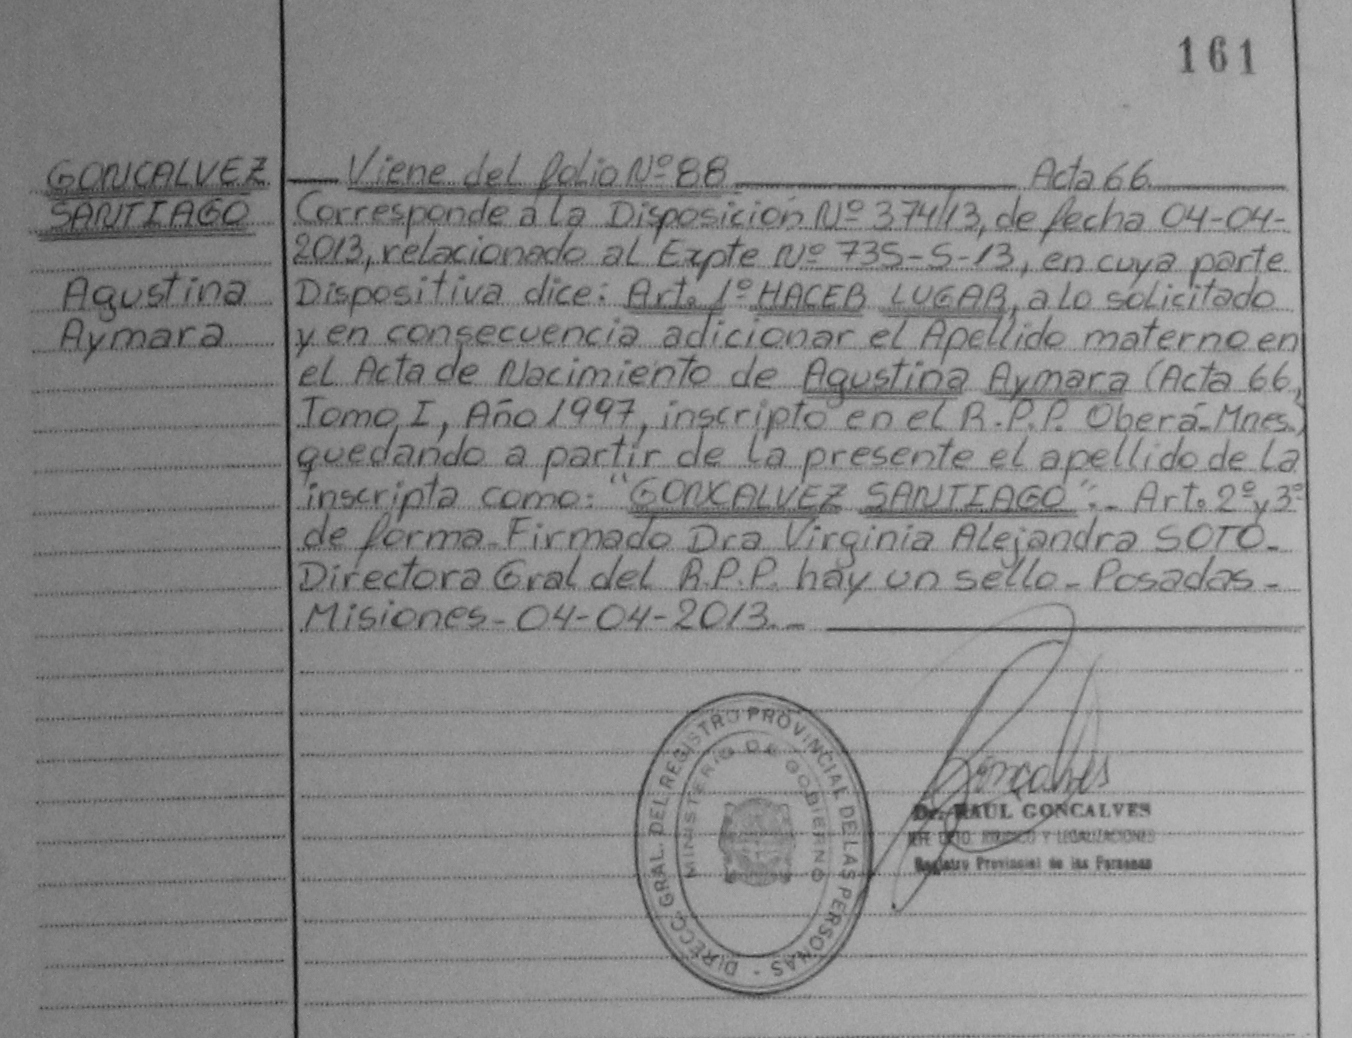 161
GONCALVEZ
SANTIAGO
Agustina
Aymara
Viene del folio Nº 88 Acta 66
Corresponde a la Disposición Nº 374/13, de fecha 04-04-
2013, relacionado al Expte Nº 735-S-13, en cuya parte
Dispositiva dice: Art. 1º HACER LUGAR, a lo solicitado
y en consecuencia adicionar el Apellido materno en
el Acta de Nacimiento de Agustina Aymara (Acta 66,
Tomo I, Año 1997, inscripto en el R.P.P. Oberá-Mnes.)
quedando a partir de la presente el apellido de la
inscripta como: "GONCALVEZ SANTIAGO".- Art. 2º y 3º
de forma-Firmado Dra Virginia Alejandra SOTO-
Directora Gral del R.P.P. hay un sello-Posadas-
Misiones-04-04-2013.-
DIRECC. GRAL. DEL REGISTRO PROVINCIAL DE LAS PERSONAS -
MINISTERIO DE GOBIERNO
Gonçalves
Dr. RAUL GONCALVES
JEFE DPTO. JURIDICO Y LEGALIZACIONES
Registro Provincial de las Personas